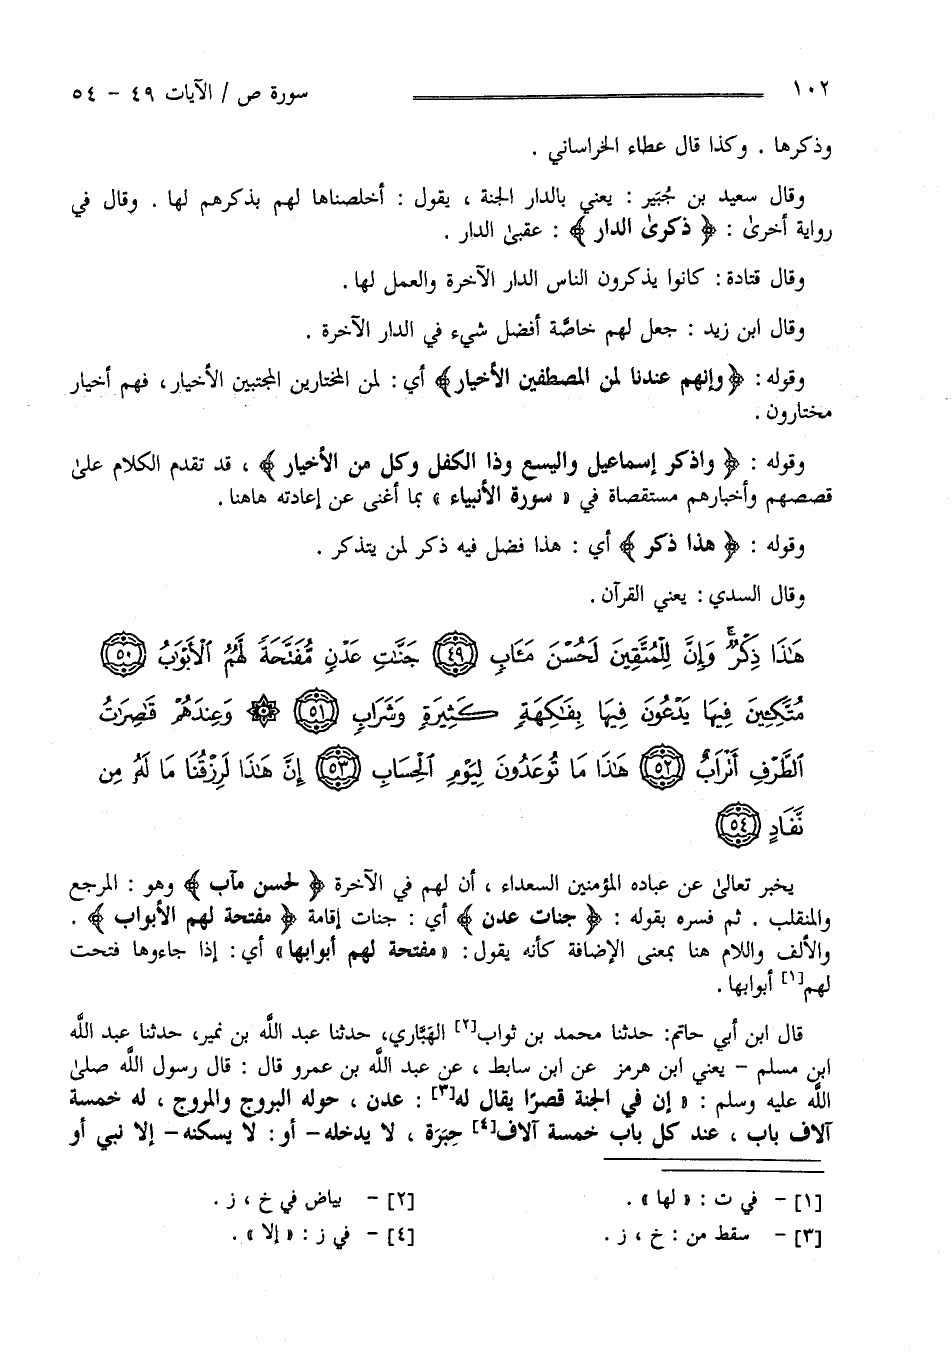 ١٠٢ سورة ص / الآيات ٤٩ - ٥٤
وذكرها . وكذا قال عطاء الخراساني .
وقال سعيد بن جُبَير : يعني بالدار الجنة ، يقول : أخلصناها لهم بذكرهم لها . وقال في
رواية أخرىٰ : ﴿ ذكرىٰ الدار ﴾ : عقبىٰ الدار .
وقال قتادة : كانوا يذكرون الناس الدار الآخرة والعمل لها .
وقال ابن زيد : جعل لهم خاصَّة أفضل شيء في الدار الآخرة .
وقوله : ﴿ وإنهم عندنا لمن المصطفين الأخيار ﴾ أي : لمن المختارين المجتبين الأخيار ، فهم أخيار
مختارون .
وقوله : ﴿ واذكر إسماعيل واليسع وذا الكفل وكل من الأخيار ﴾ ، قد تقدم الكلام علىٰ
قصصهم وأخبارهم مستقصاة في « سورة الأنبياء » بما أغنى عن إعادته هاهنا .
وقوله : ﴿ هذا ذكر ﴾ أي : هذا فضل فيه ذكر لمن يتذكر .
وقال السدي : يعني القرآن .
هَٰذَا ذِكْرٌ ۚ وَإِنَّ لِلْمُتَّقِينَ لَحُسْنَ مَـَٔابٍ ٤٩ جَنَّٰتِ عَدْنٍ مُّفَتَّحَةً لَّهُمُ ٱلْأَبْوَٰبُ ٥٠
مُتَّكِـِٔينَ فِيهَا يَدْعُونَ فِيهَا بِفَٰكِهَةٍ كَثِيرَةٍ وَشَرَابٍ ٥١ ۞ وَعِندَهُمْ قَٰصِرَٰتُ
ٱلطَّرْفِ أَتْرَابٌ ٥٢ هَٰذَا مَا تُوعَدُونَ لِيَوْمِ ٱلْحِسَابِ ٥٣ إِنَّ هَٰذَا لَرِزْقُنَا مَا لَهُۥ مِن
نَّفَادٍ ٥٤
يخبر تعالىٰ عن عباده المؤمنين السعداء ، أن لهم في الآخرة ﴿ لحسن مآب ﴾ وهو : المرجع
والمنقلب . ثم فسره بقوله : ﴿ جنات عدن ﴾ أي : جنات إقامة ﴿ مفتحة لهم الأبواب ﴾ .
والألف واللام هنا بمعنى الإضافة كأنه يقول : « مفتحة لهم أبوابها » أي : إذا جاءوها فتحت
لهم[١] أبوابها .
قال ابن أبي حاتم : حدثنا محمد بن ثواب[٢] الهَبَّاري، حدثنا عبد اللَّه بن نمير، حدثنا عبد اللَّه
ابن مسلم – يعني ابن هرمز عن ابن سابط ، عن عبد اللَّه بن عمرو قال : قال رسول اللَّه صلىٰ
اللَّه عليه وسلم : « إن في الجنة قصرًا يقال له[٣] : عدن ، حوله البروج والمروج ، له خمسة
آلاف باب ، عند كل باب خمسة آلاف[٤] حِبَرَة ، لا يدخله – أو : لا يسكنه – إلا نبي أو
[١] – في ت : « لها » . [٢] – بياض في خ ، ز .
[٣] – سقط من : خ ، ز . [٤] – في ز : « إلا » .